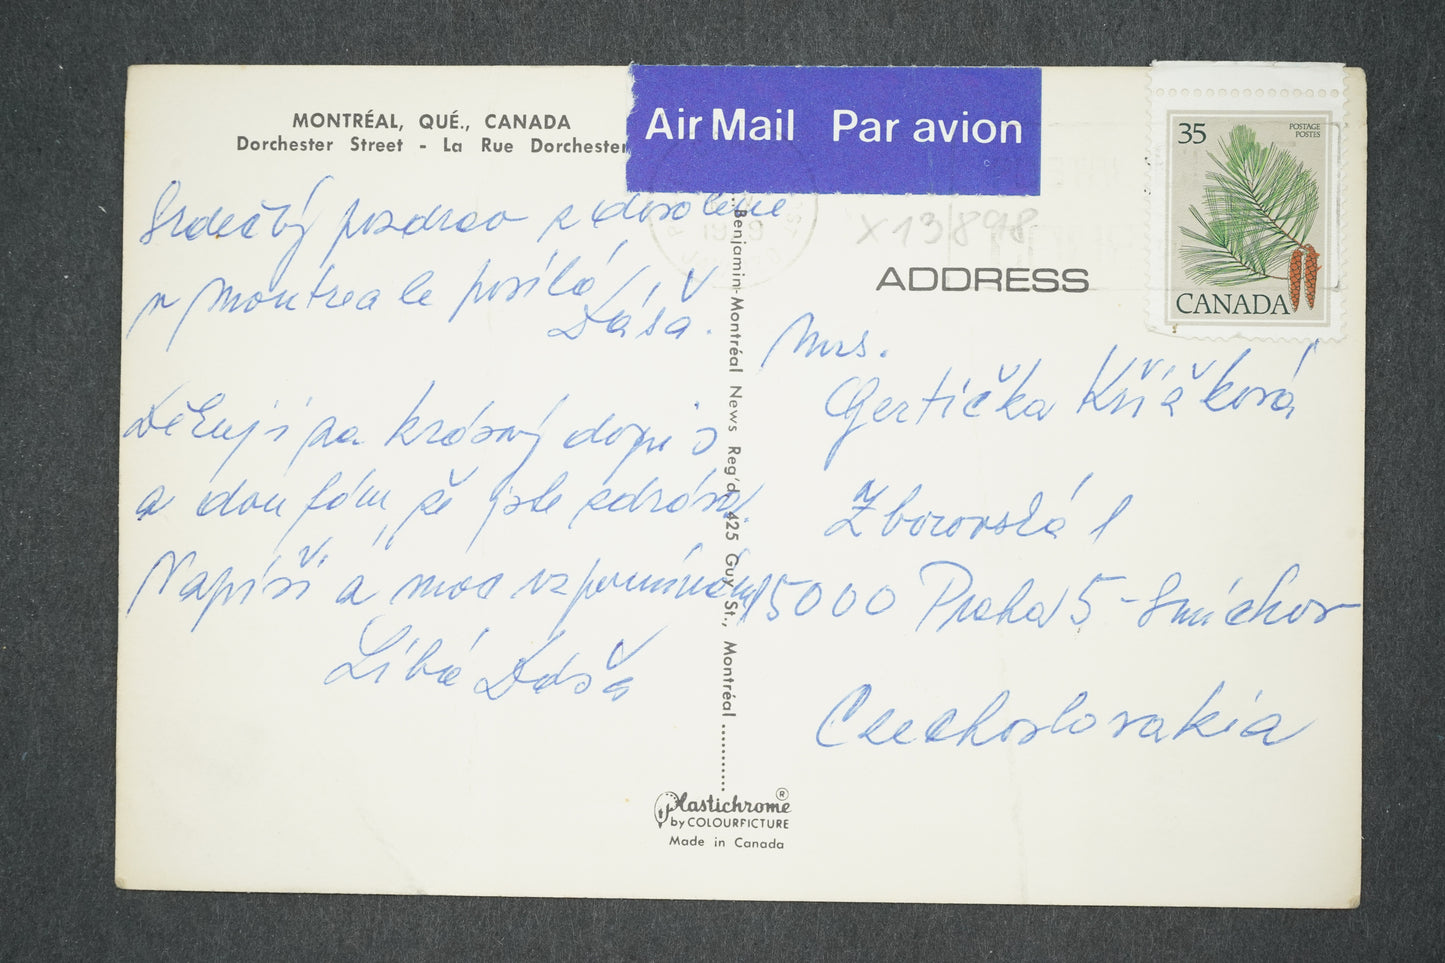 MONTRÉAL, QUÉ., CANADA
Dorchester Street - La Rue Dorchester
Air Mail Par avion
35
POSTAGE
POSTES
CANADA
X 13/898
1979
ADDRESS
Srdečný pozdrav z dovolené
v Montreale posílá
Dáša.
Děkuji za krásný dopis
a doufám, že jste zdráva.
Napíši a moc vzpomínám
Libá Dáša
Mrs.
Gertička Křížková
Zborovská 1
15000 Praha 5 - Smíchov
Czechoslovakia
Benjamin-Montréal News Reg'd. 425 Guy St., Montréal
Plastichrome ®
by COLOURPICTURE
Made in Canada